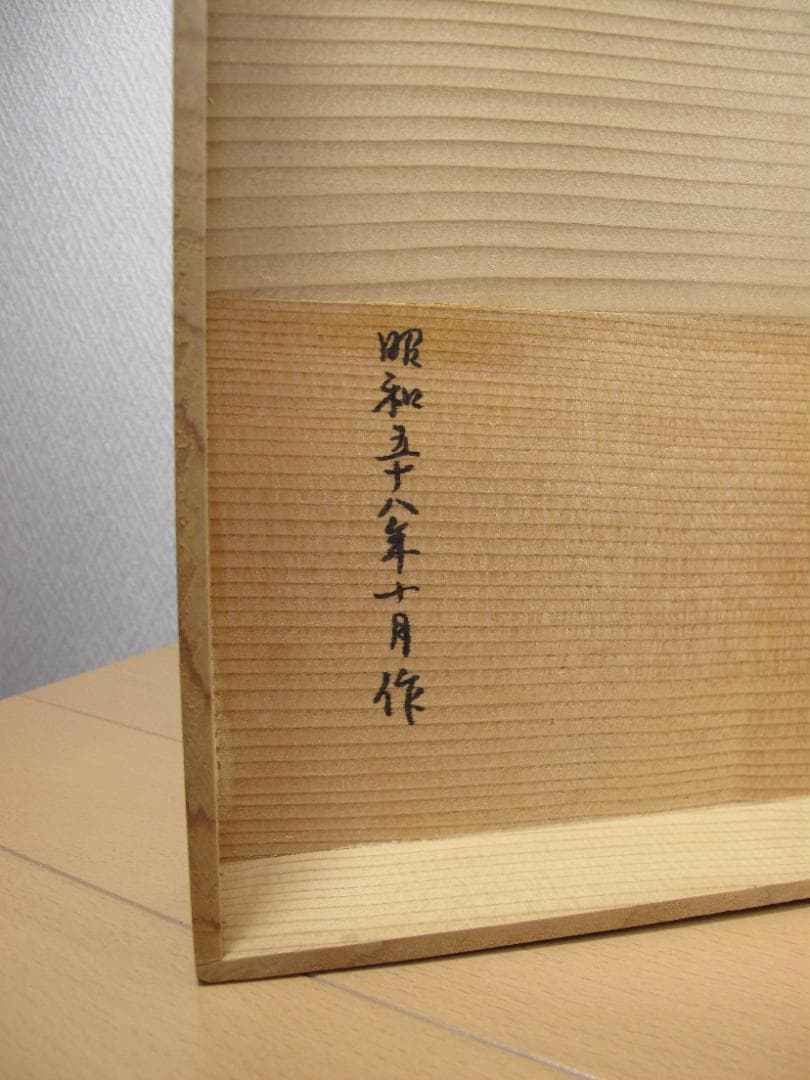 昭和五十八年十月作